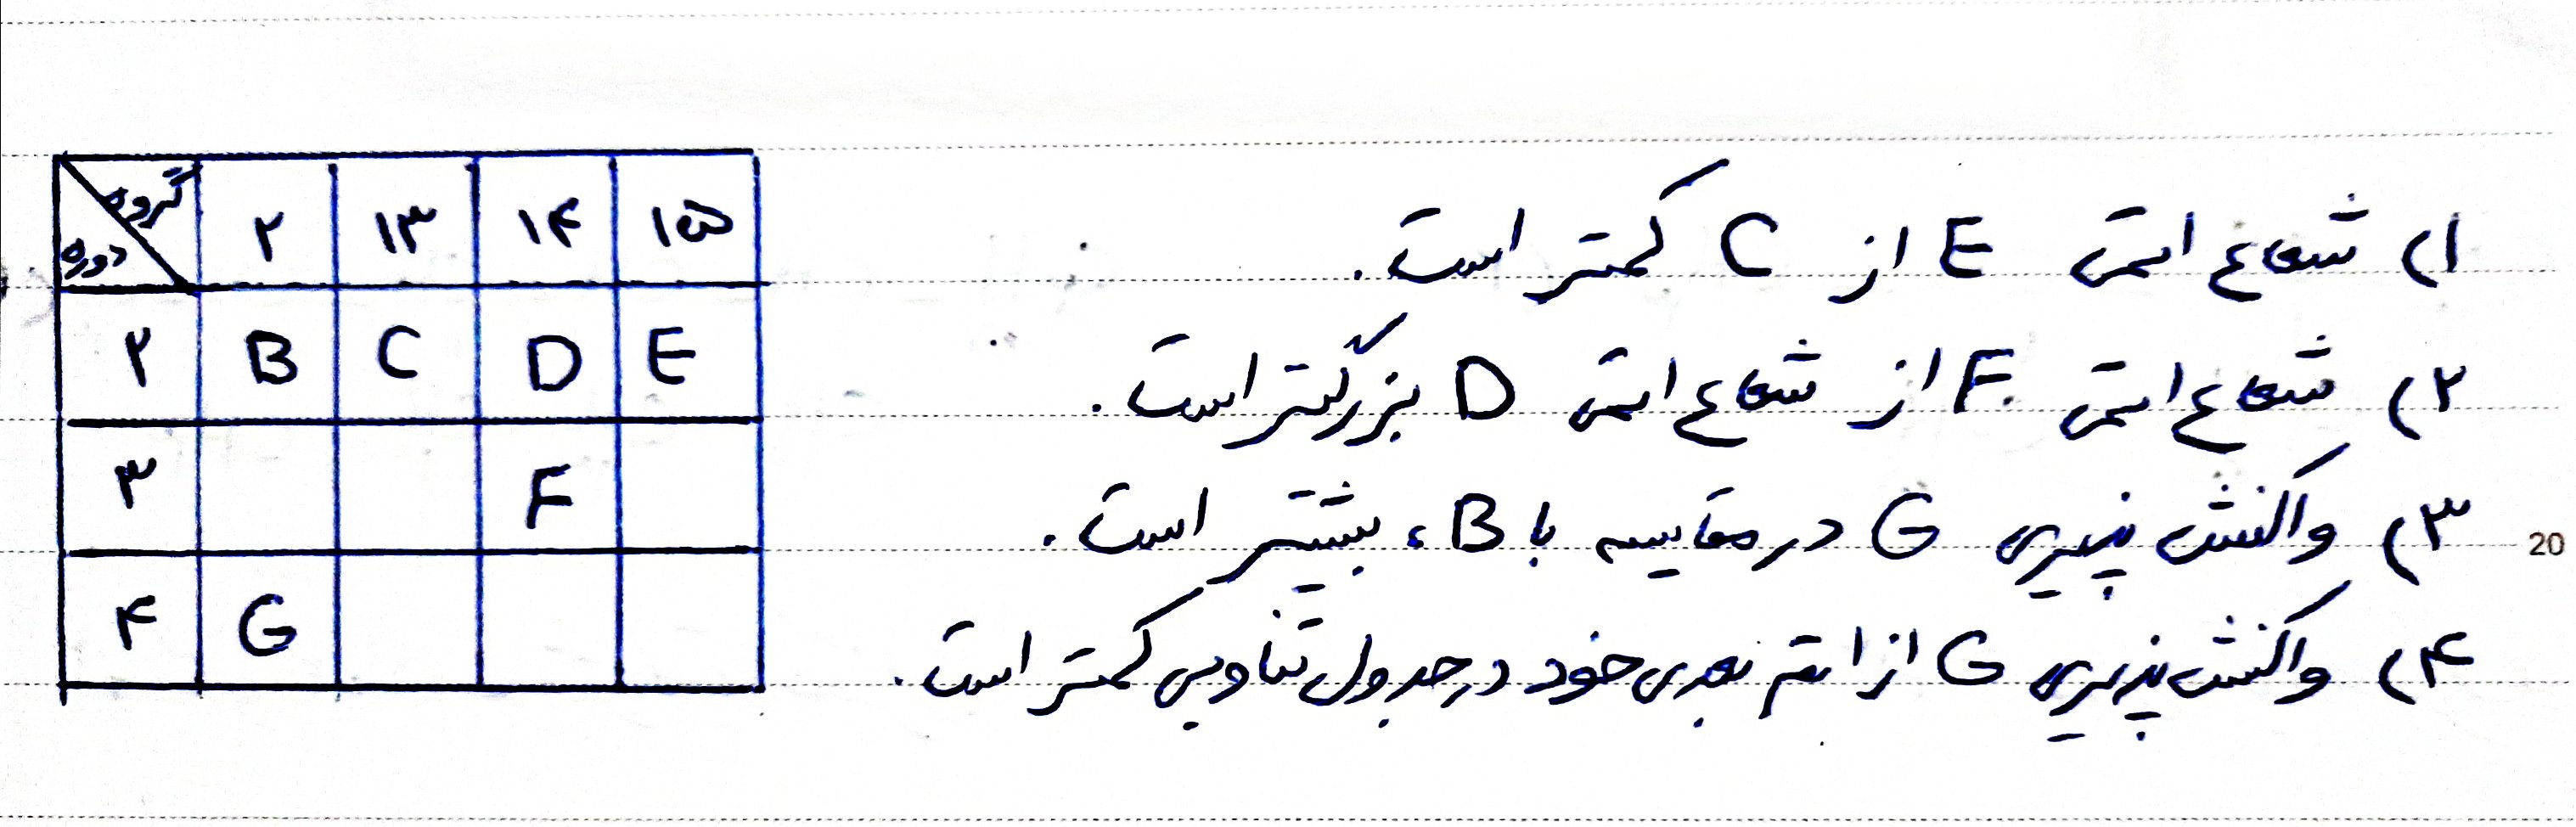 گروه
دوره
۲ ۱۳ ۱۴ ۱۵
۲ B C D E
۳ F
۴ G
۱) شعاع اتمی E از C کمتر است.
۲) شعاع اتمی F از شعاع اتمی D بزرگتر است.
۳) واکنش پذیری G در مقایسه با B، بیشتر است.
۴) واکنش پذیری G از اتم بعدی خود در جدول تناوبی کمتر است.
20